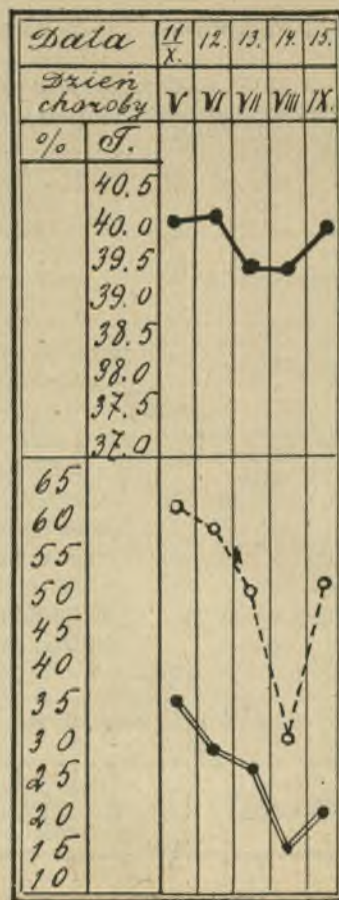 Data 11/X. 12. 13. 14. 15.
Dzień choroby V VI VII VIII IX.
% T.
40.5
40.0
39.5
39.0
38.5
38.0
37.5
37.0
65
60
55
50
45
40
35
30
25
20
15
10